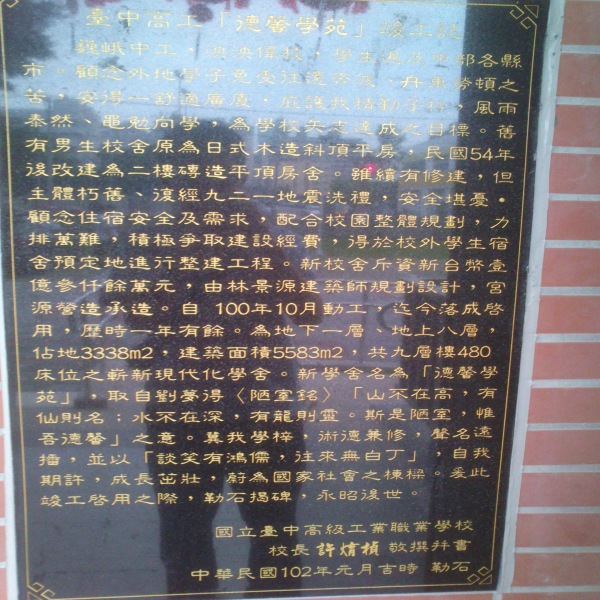 臺中高工「德馨學苑」竣工誌
巍峨中工，泱泱偉校，學生遍及中部各縣
市，顧念外地學子免受往返奔波、舟車勞頓之
苦，安得一舒適廣廈，庇護我精勤子梓，風雨
泰然、黽勉向學，為學校矢志達成之目標。舊
有男生校舍原為日式木造斜頂平房，民國54年
後改建為二樓磚造平頂房舍。雖續有修建，但
主體朽舊、復經九二一地震洗禮，安全堪憂。
顧念住宿安全及需求，配合校園整體規劃，力
排萬難，積極爭取建設經費，得於校外學生宿
舍預定地進行整建工程。新校舍斥資新台幣壹
億參仟餘萬元，由林景源建築師規劃設計，宮
源營造承造。自 100年10月動工，迄今落成啓
用，歷時一年有餘。為地下一層 地上八層，
佔地3338m2，建築面積5583m2，共九層樓480
床位之嶄新現代化學舍。新學舍名為「德馨學
苑」，取自劉夢得〈陋室銘〉「山不在高，有
仙則名；水不在深，有龍則靈。斯是陋室，惟
吾德馨」之意。冀我學梓，術德兼修，聲名遠
播，並以「談笑有鴻儒，往來無白丁」，自我
期許，成長茁壯，蔚為國家社會之棟樑。爰此
竣工啓用之際，勒石揭碑，永昭後世。
國立臺中高級工業職業學校
校長 許堉楨 敬撰并書
中華民國102年元月吉時 勒石